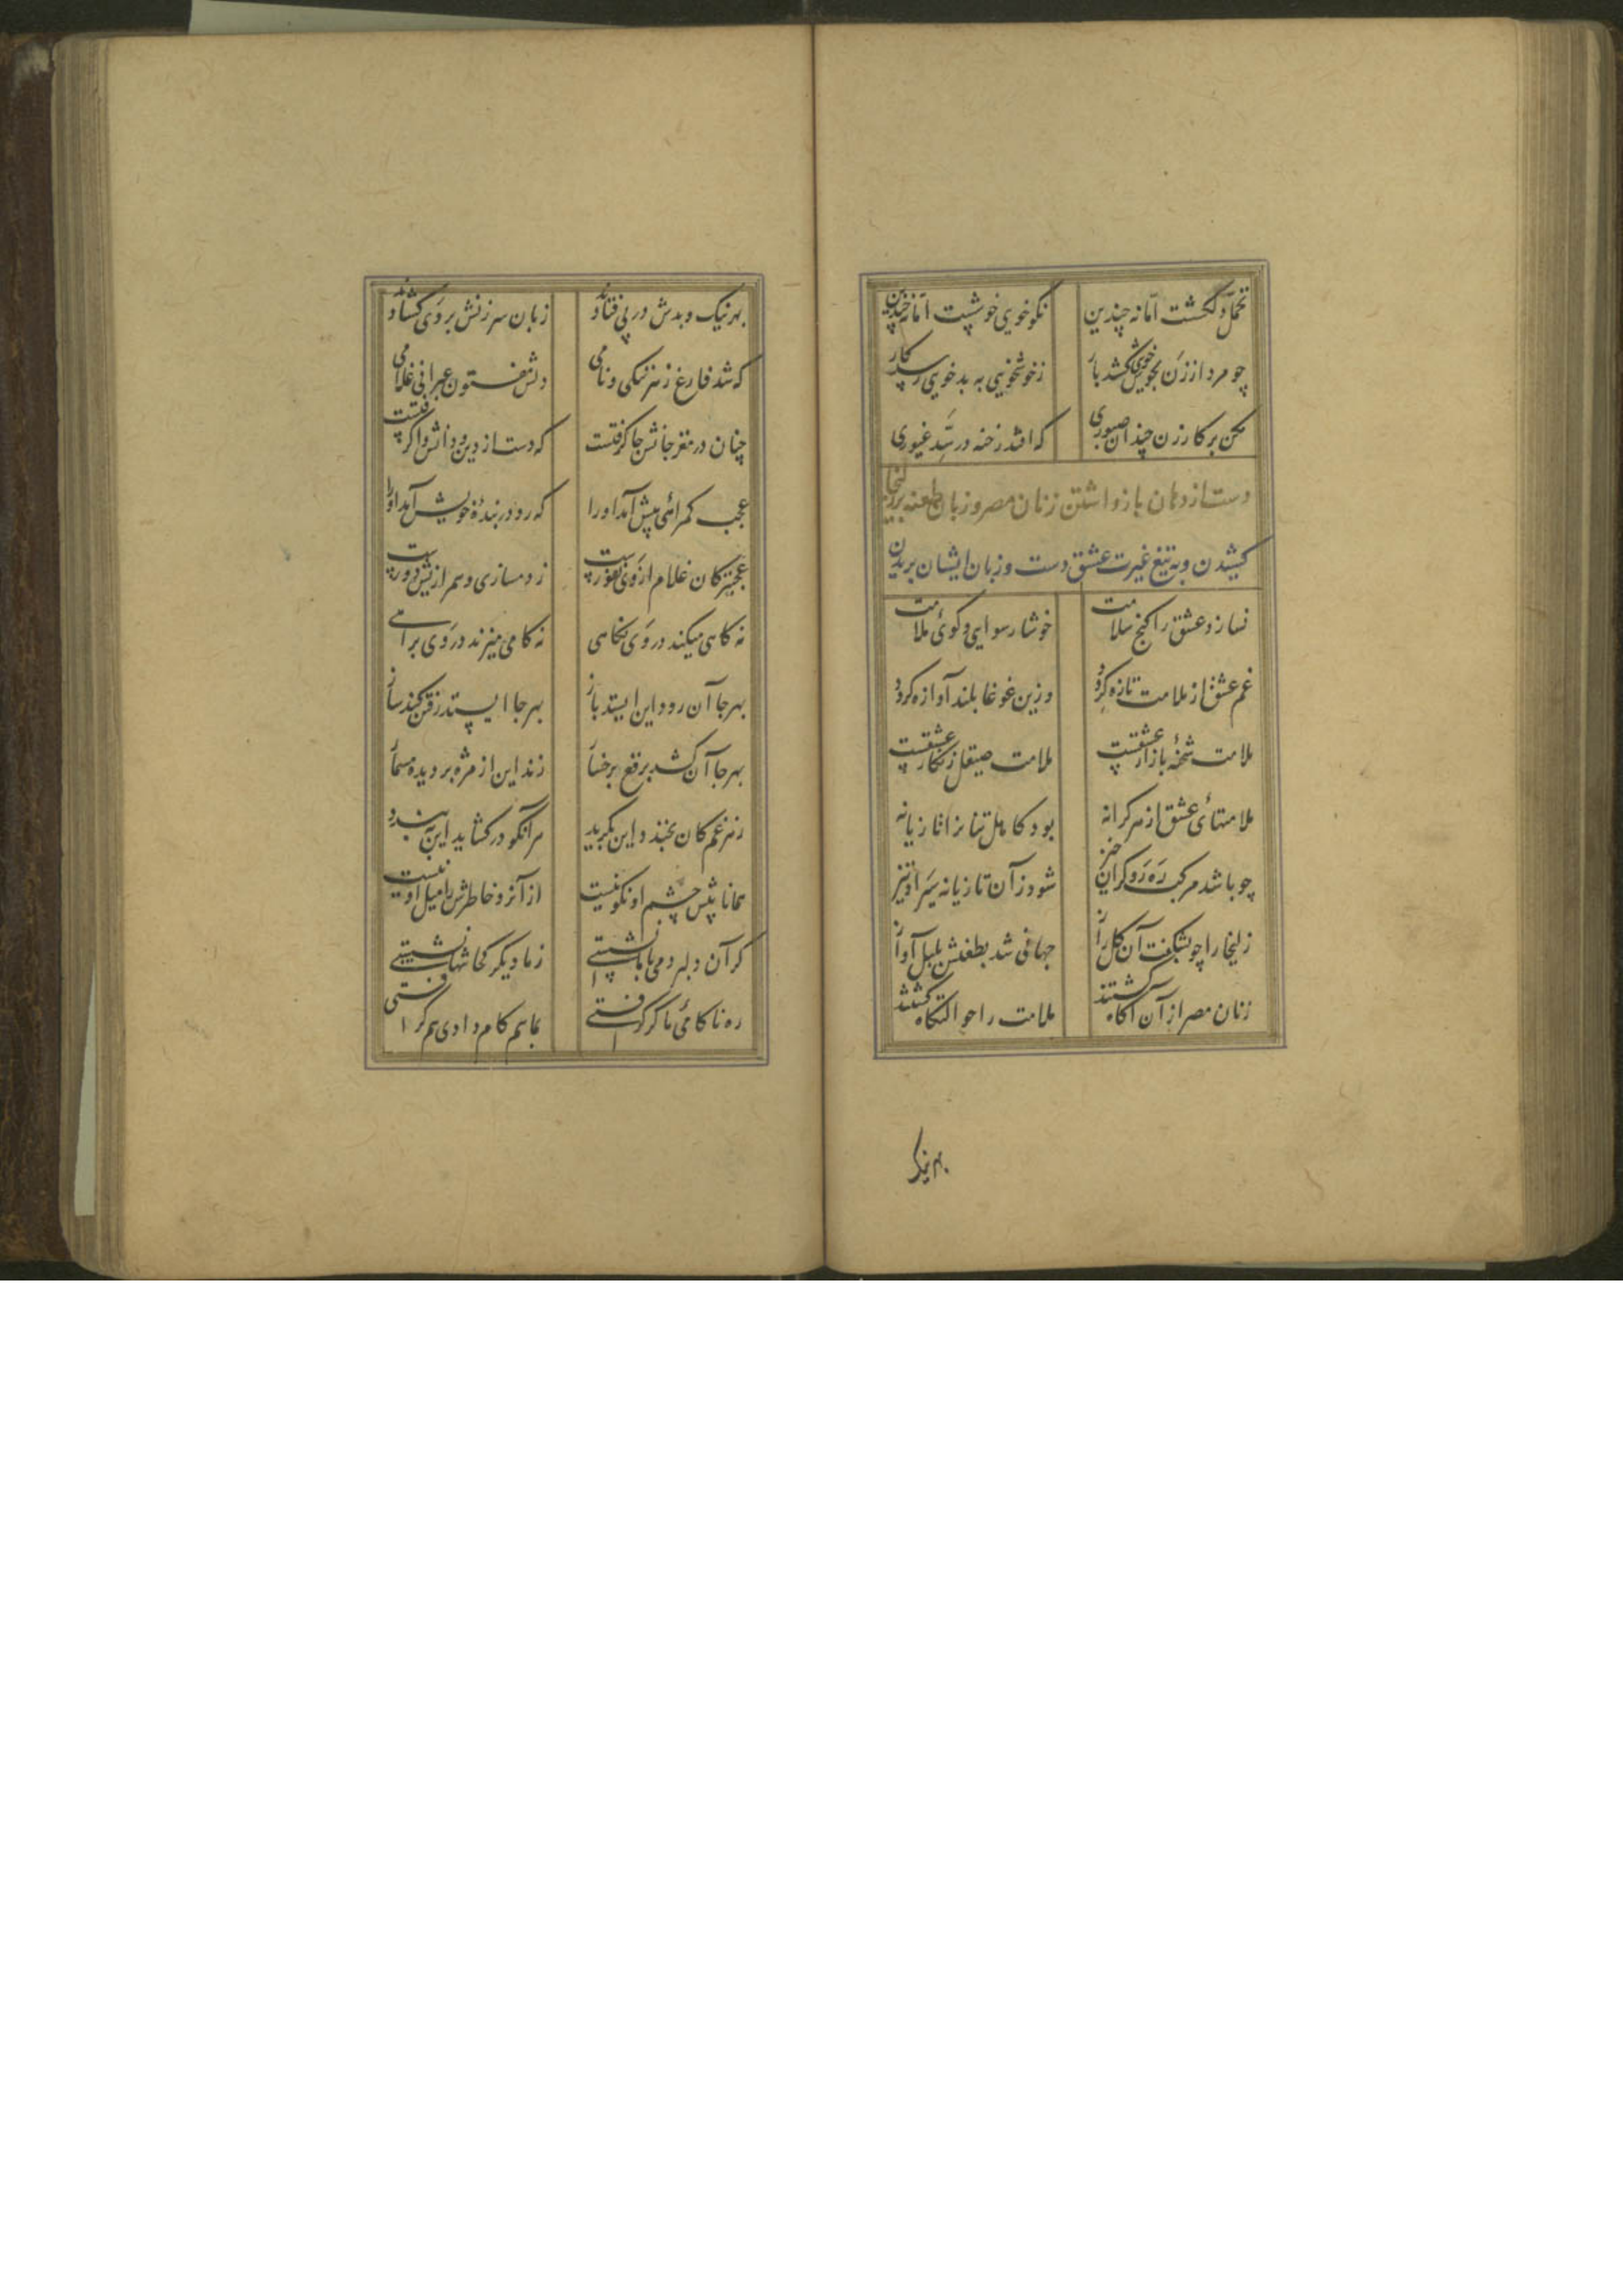 تحمل دلکشست اما نه چندین نکو خویی خوشست اما نه چندین
چو مرد از زن بخوش خویی کشد بار ز خوشخویی به بدخویی رسد کار
مکن بر کار زن چندان صبوری که افتد رخنه در سد غیوری
دست از دهان بازداشتن زنان مصر و زبان طعنه بر زلیخا
کشیدن و به تیغ غیرت عشق دست و زبان ایشان بریدن
نسازد عشق را کنج سلامت خوشا رسوایی و کوی ملامت
غم عشق از ملامت تازه کردد وزین غوغا بلند آوازه کردد
ملامت شحنهٔ بازار عشقست ملامت صیقل زنکار عشقست
ملامتهای عشق از هر کرانه بود کاهل تنانرا تازیانه
چو باشد مرکب ره رو کران خیز شود زآن تازیانه سیر او تیز
زلیخا را چو بشکفت آن کل راز جهانی شد بطعنش بلبل آواز
زنان مصر از آن آکاه کشتند ملامت را حوالتکاه کشتند
بهر نیک
بهر نیک و بدش در پی فتادند زبان سرزنش بر وی کشادند
که شد فارغ ز هر ننکی و نامی دلش مفتون عبرانی غلامی
چنان در مغز جانش جا کرفتست که دست از دین و دانش وا کرفتست
عجب کمراهئی پیش آمد او را که رو در بندهٔ خویش آمد او را
عجبتر کان غلام از وی نفورست ز دمسازی و همرازیش دورست
نه کاهی میکند در وی نکاهی نه کامی میزند در وی براهی
بهر جا آن رود این ایستد باز بهر جا ایستد رفتن کند ساز
بهر جا آن کشد برقع برخسار زند این از مژه بر دیده مسمار
ز هر غم کان بخندد این بکرید هر آنکو در کشاید این ببندد
همانا پیش چشم او نکو نیست از آنرو خاطرش را میل او نیست
کر آن دلبر دمی با ما نشستی ز ما دیکر کجا تنها نشستی
ره ناکامئی ما کر کرفتی بما هم کام دادی هم کرفتی